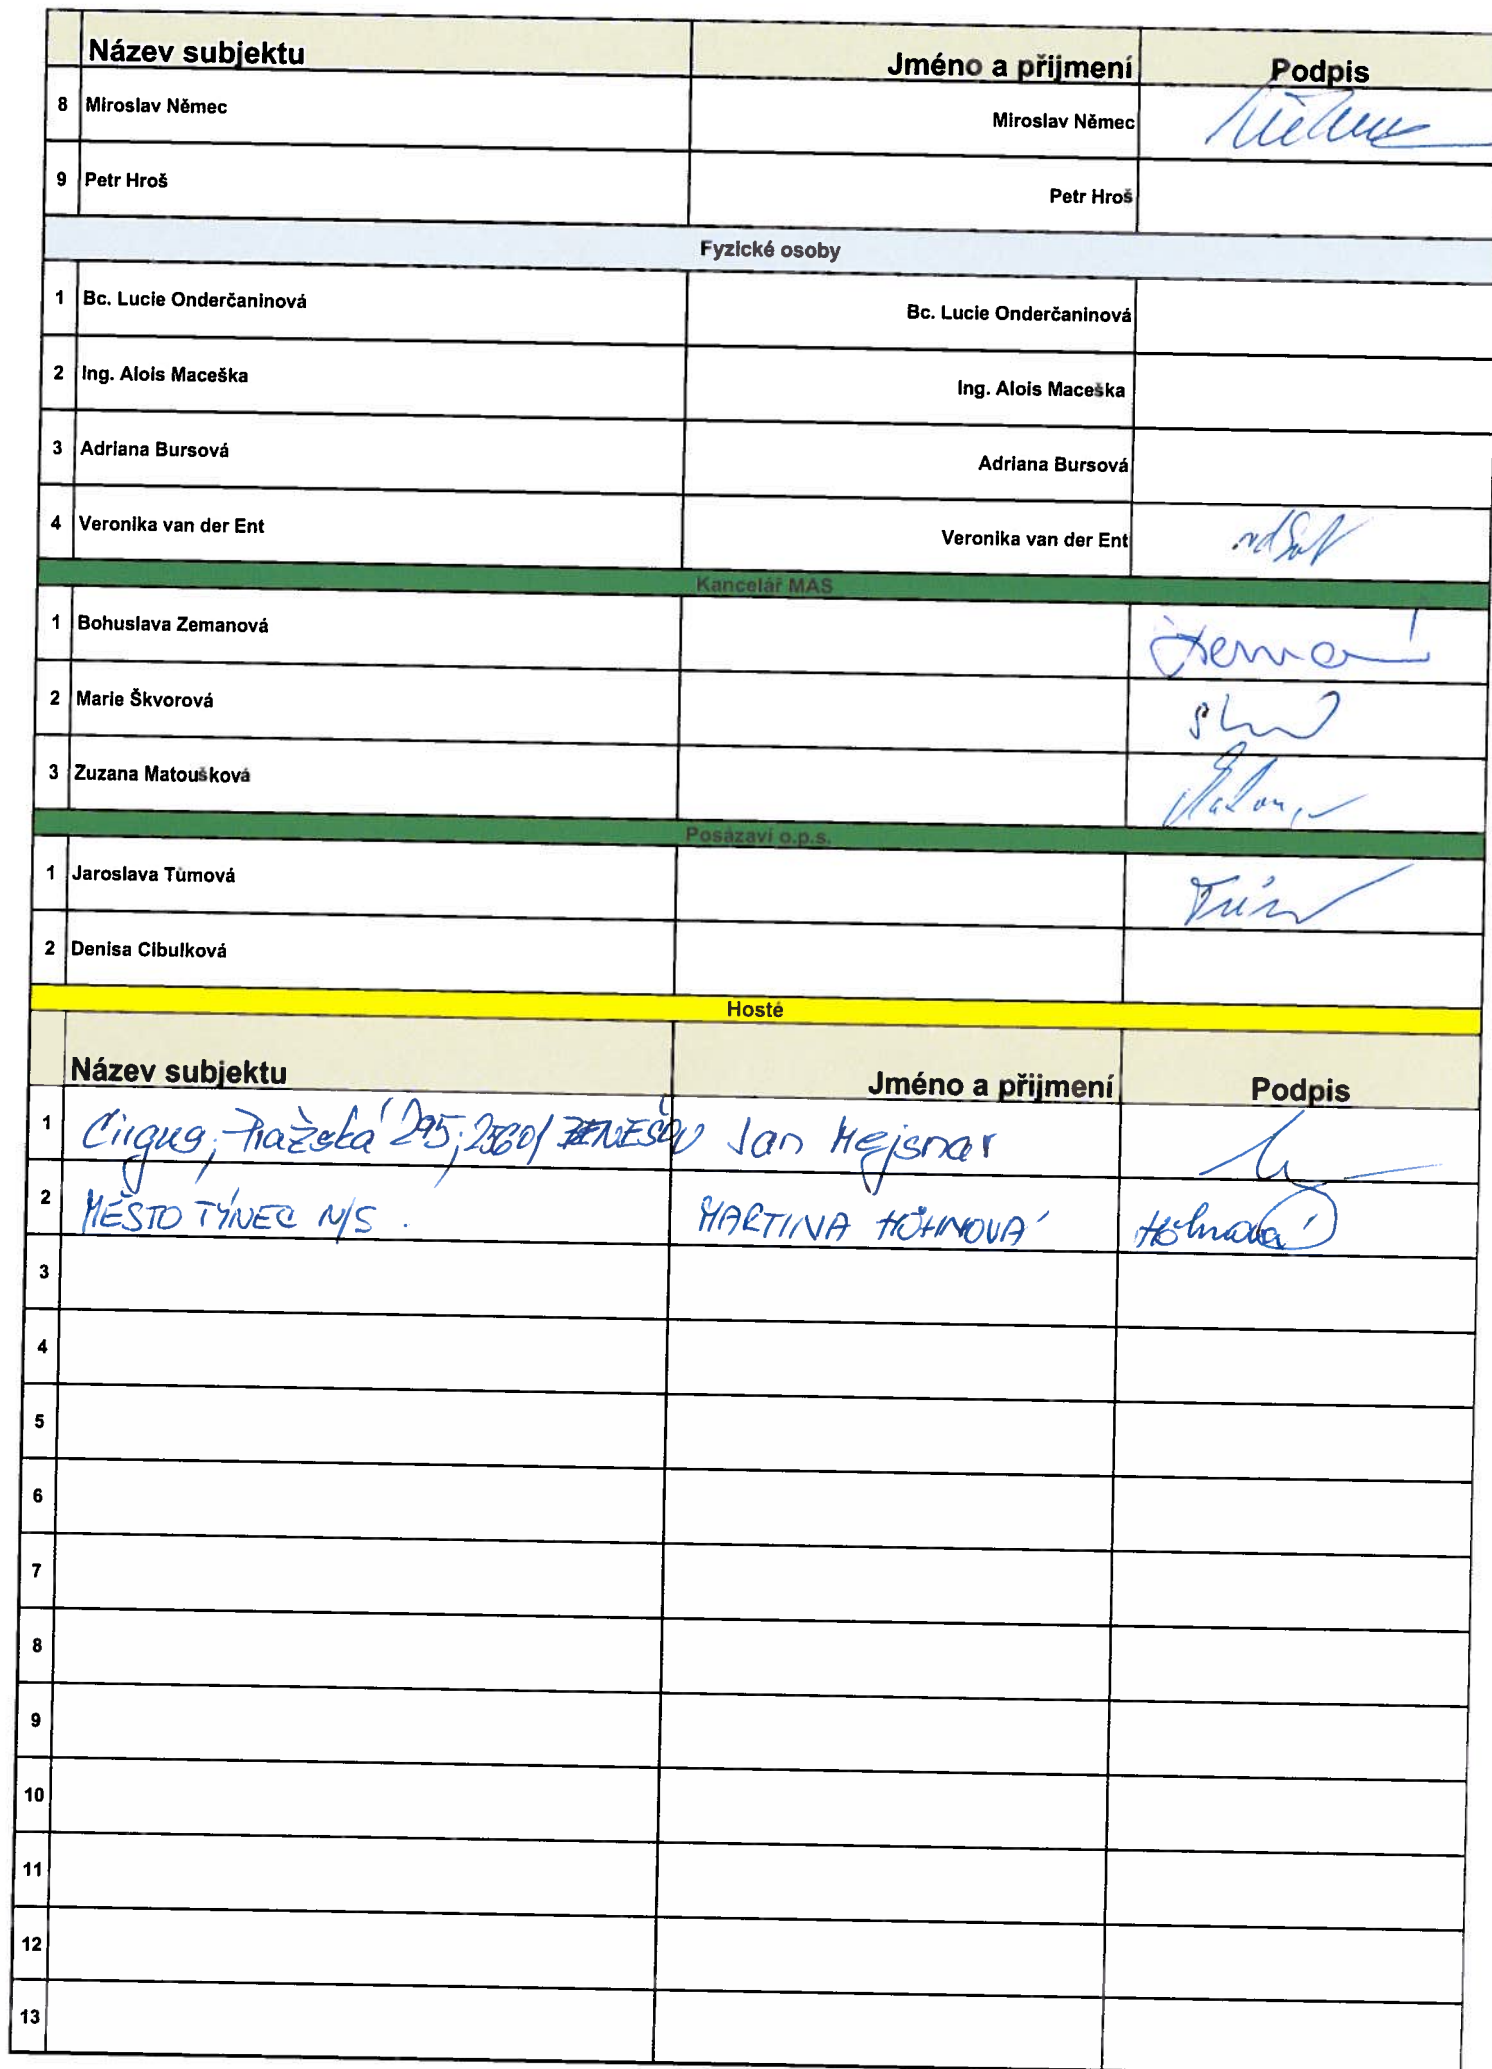 Název subjektu Jméno a přijmení Podpis
8 Miroslav Němec Miroslav Němec
9 Petr Hroš Petr Hroš
Fyzické osoby
1 Bc. Lucie Onderčaninová Bc. Lucie Onderčaninová
2 Ing. Alois Maceška Ing. Alois Maceška
3 Adriana Bursová Adriana Bursová
4 Veronika van der Ent Veronika van der Ent
Kancelář MAS
1 Bohuslava Zemanová
2 Marie Škvorová
3 Zuzana Matoušková
Posázaví o.p.s.
1 Jaroslava Tůmová
2 Denisa Cibulková
Hosté
Název subjektu Jméno a přijmení Podpis
1 Pražská 295, 25601 BENEŠOV Jan Mejsnar
2 MĚSTO TÝNEC N/S. MARTINA HÖHNOVÁ Höhnová
3
4
5
6
7
8
9
10
11
12
13